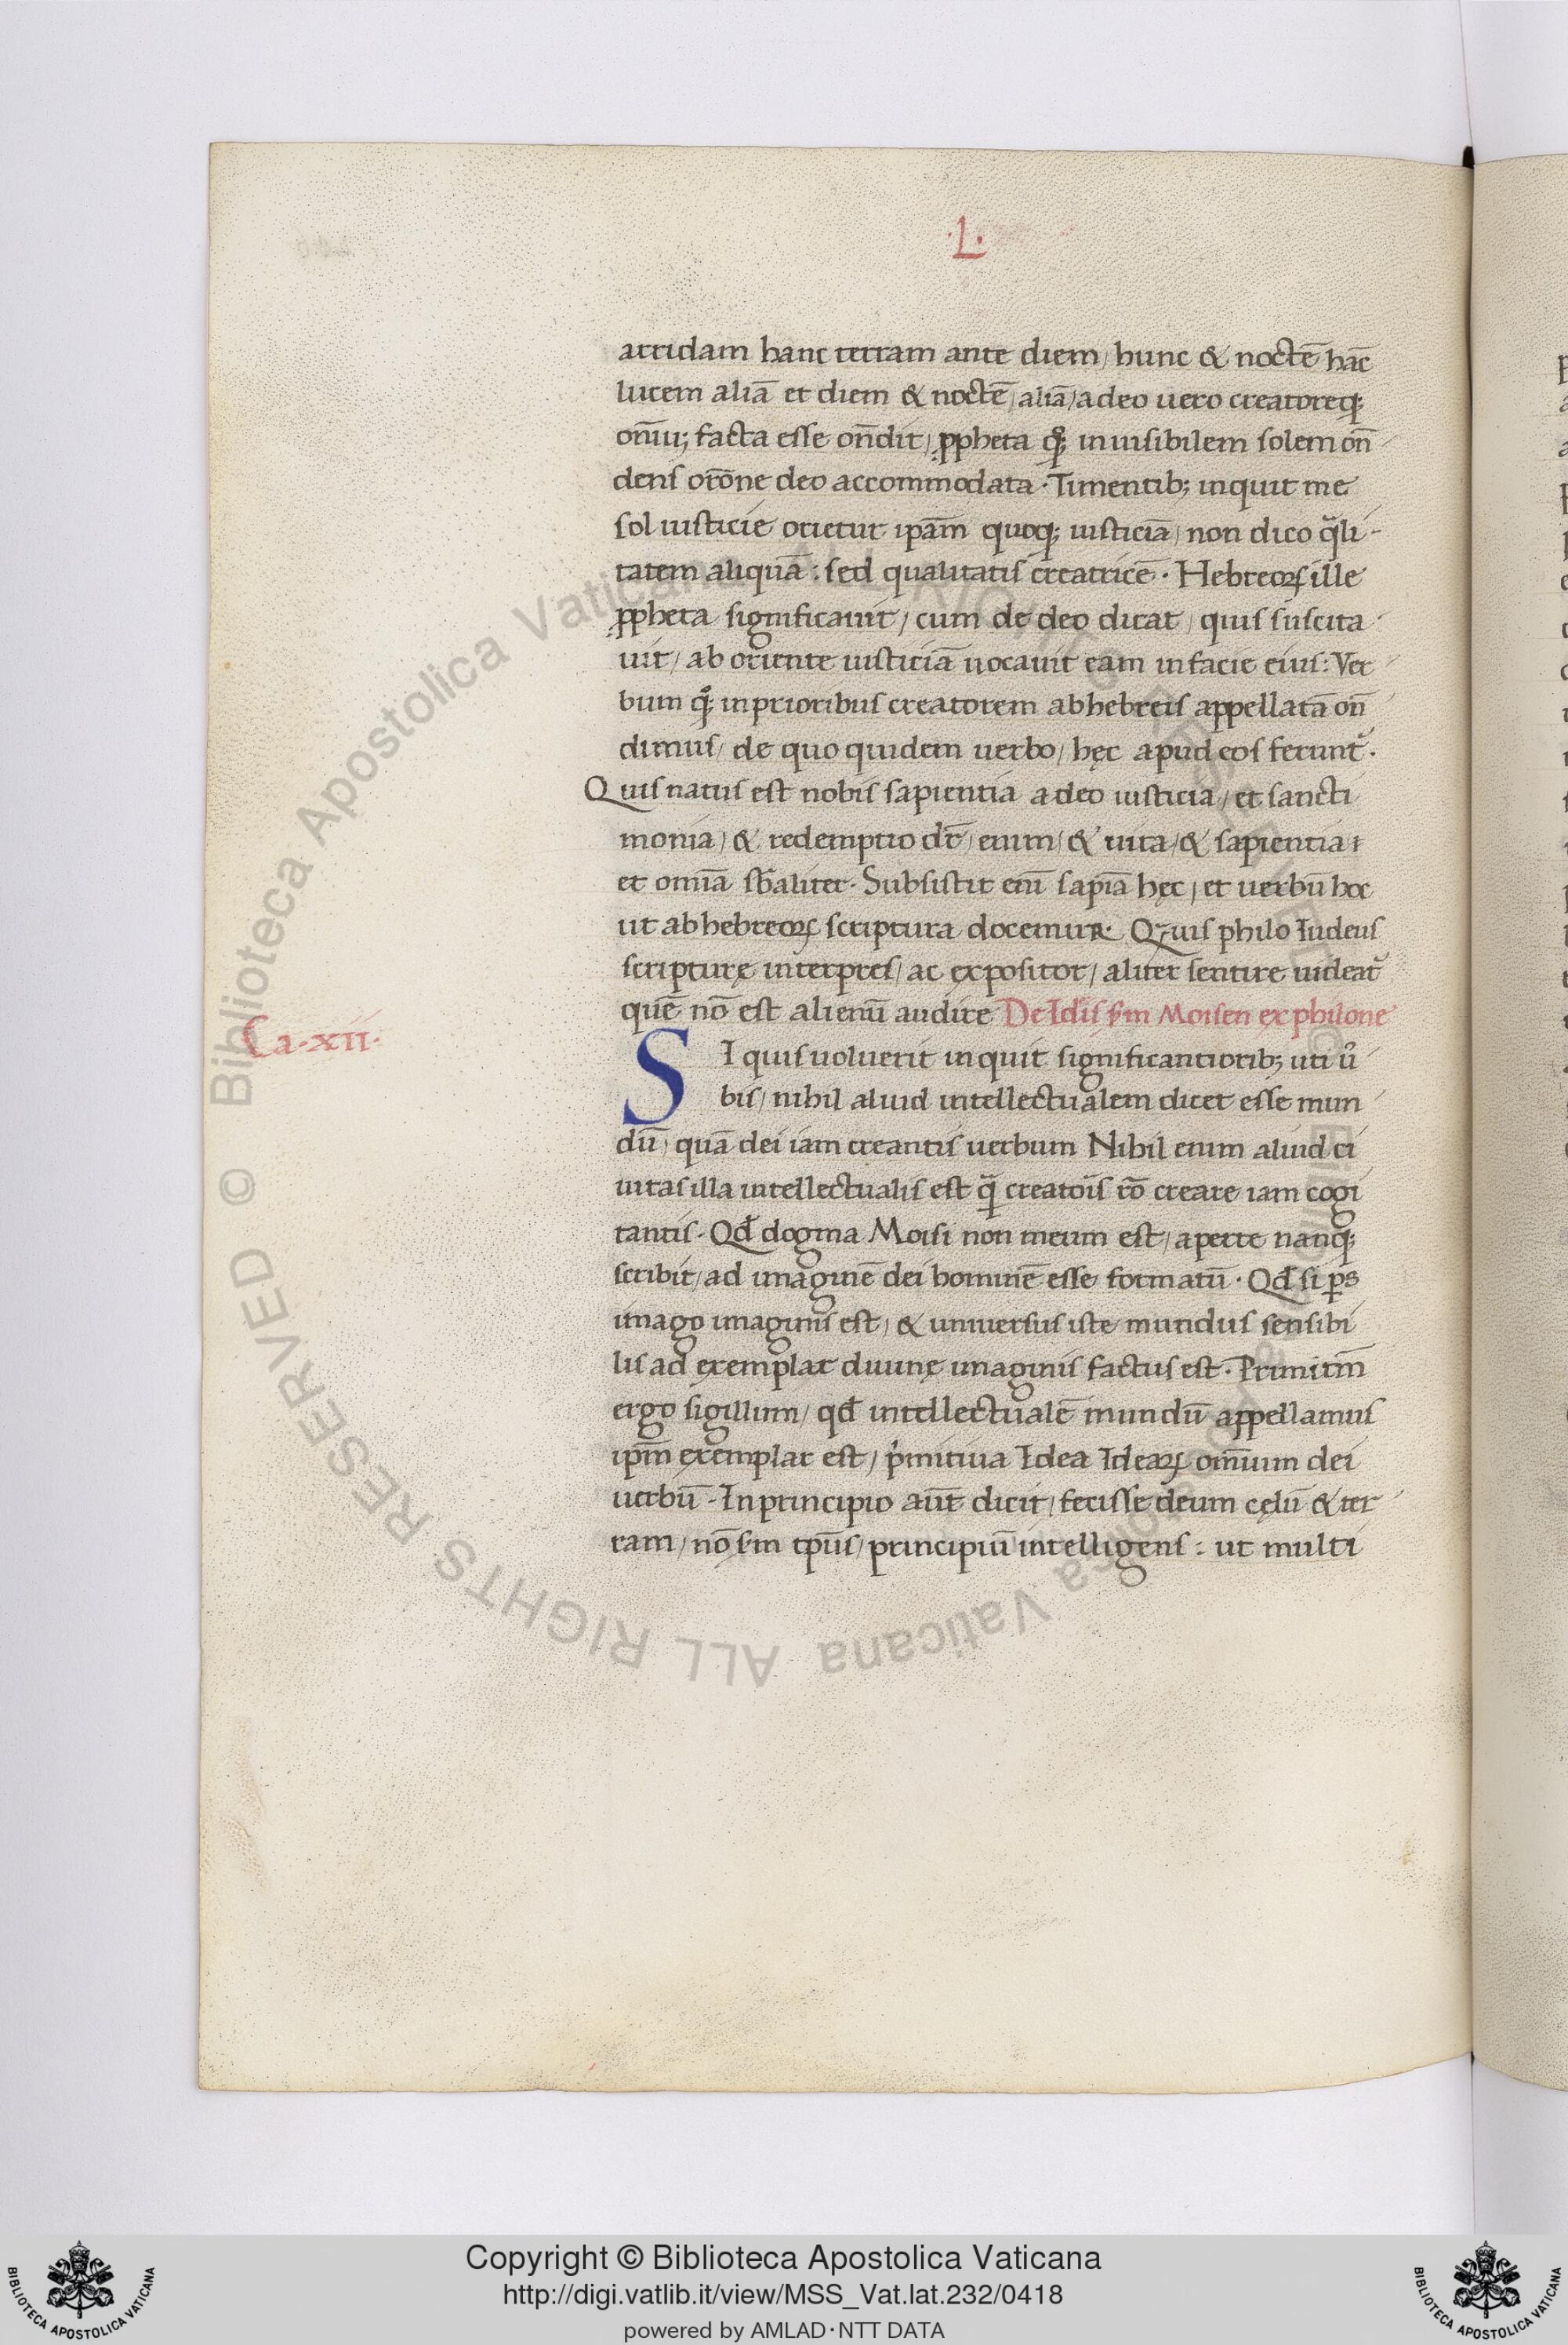 ·L·
arridam hanc terram ante diem/ hunc & noctē hāc
lucem aliā et diem & noctē/ aliā/ a deo uero creatoreq;
oм̄iu; facta esse on̄dit/ ꝓpheta qͦq; inuisibilem solem on̄
dens orōne deo accommodata · Timentib; inquit me
sol iusticie orietur ipām quoq; iusticiā/ non dico qͣli-
tatem aliquā : sed qualitatis creatricē · Hebreoꝝ ille
ꝓpheta significauit/ cum de deo dicat/ quis suscita
uit/ ab oriente iusticiā uocauit eam in facie eius : Ver
bum qͦq; in prioribus creatorem ab hebreis appellatā on̄
dimus/ de quo quidem uerbo/ hęc apud eos ferunt᷑ ·
Quis natus est nobis sapientia a deo iusticia/ et sancti
monia/ & redemptio dr̄/ enim/ & uita/ & sapientia
et omīa sb̄aliter · Subsistit eni᷑ sapīa hęc/ et uerbū hoc
ut ab hebreoꝝ scriptura docemur · Quis philo Iudeus
scripturę interpres/ ac expositor/ aliter sentire uideat᷑
quē nō est alienū audire De Idīs s̄m Moisen ex philone
Ca · XII ·
SI quis uoluerit inquit significantiorib; uti ūͦ
bis/ nihil aliud intellectualem dicet esse mun
dū/ quā dei iam creantis uerbum Nihil enim aliud ci
uitas illa intellectualis est qͣ creatoīs rō creare iam cogi
tantis · Qđ dogma Moisi non meum est/ aperte nanq;
scribit/ ad imaginē dei hominē esse formatū · Qđ si ꝑs
imago imaginis est/ & uniuersus iste mundus sensibi
lis ad exemplar diuinę imaginis factus est · Primitm̄
ergo sigillum/ qđ intellectualē mundū appellamus
ipm̄ exemplar est/ pͥmitiua Idea Ideaꝝ om̄ium dei
uerbū · In principio aūt dicit/ fecisse deum cęlū & ter
ram/ nō s̄m tp̄us/ principiū intelligens : ut multi
© Biblioteca Apostolica Vaticana ALL RIGHTS RESERVED
Copyright © Biblioteca Apostolica Vaticana
http://digi.vatlib.it/view/MSS_Vat.lat.232/0418
powered by AMLAD·NTT DATA
BIBLIOTECA APOSTOLICA VATICANA
BIBLIOTECA APOSTOLICA VATICANA